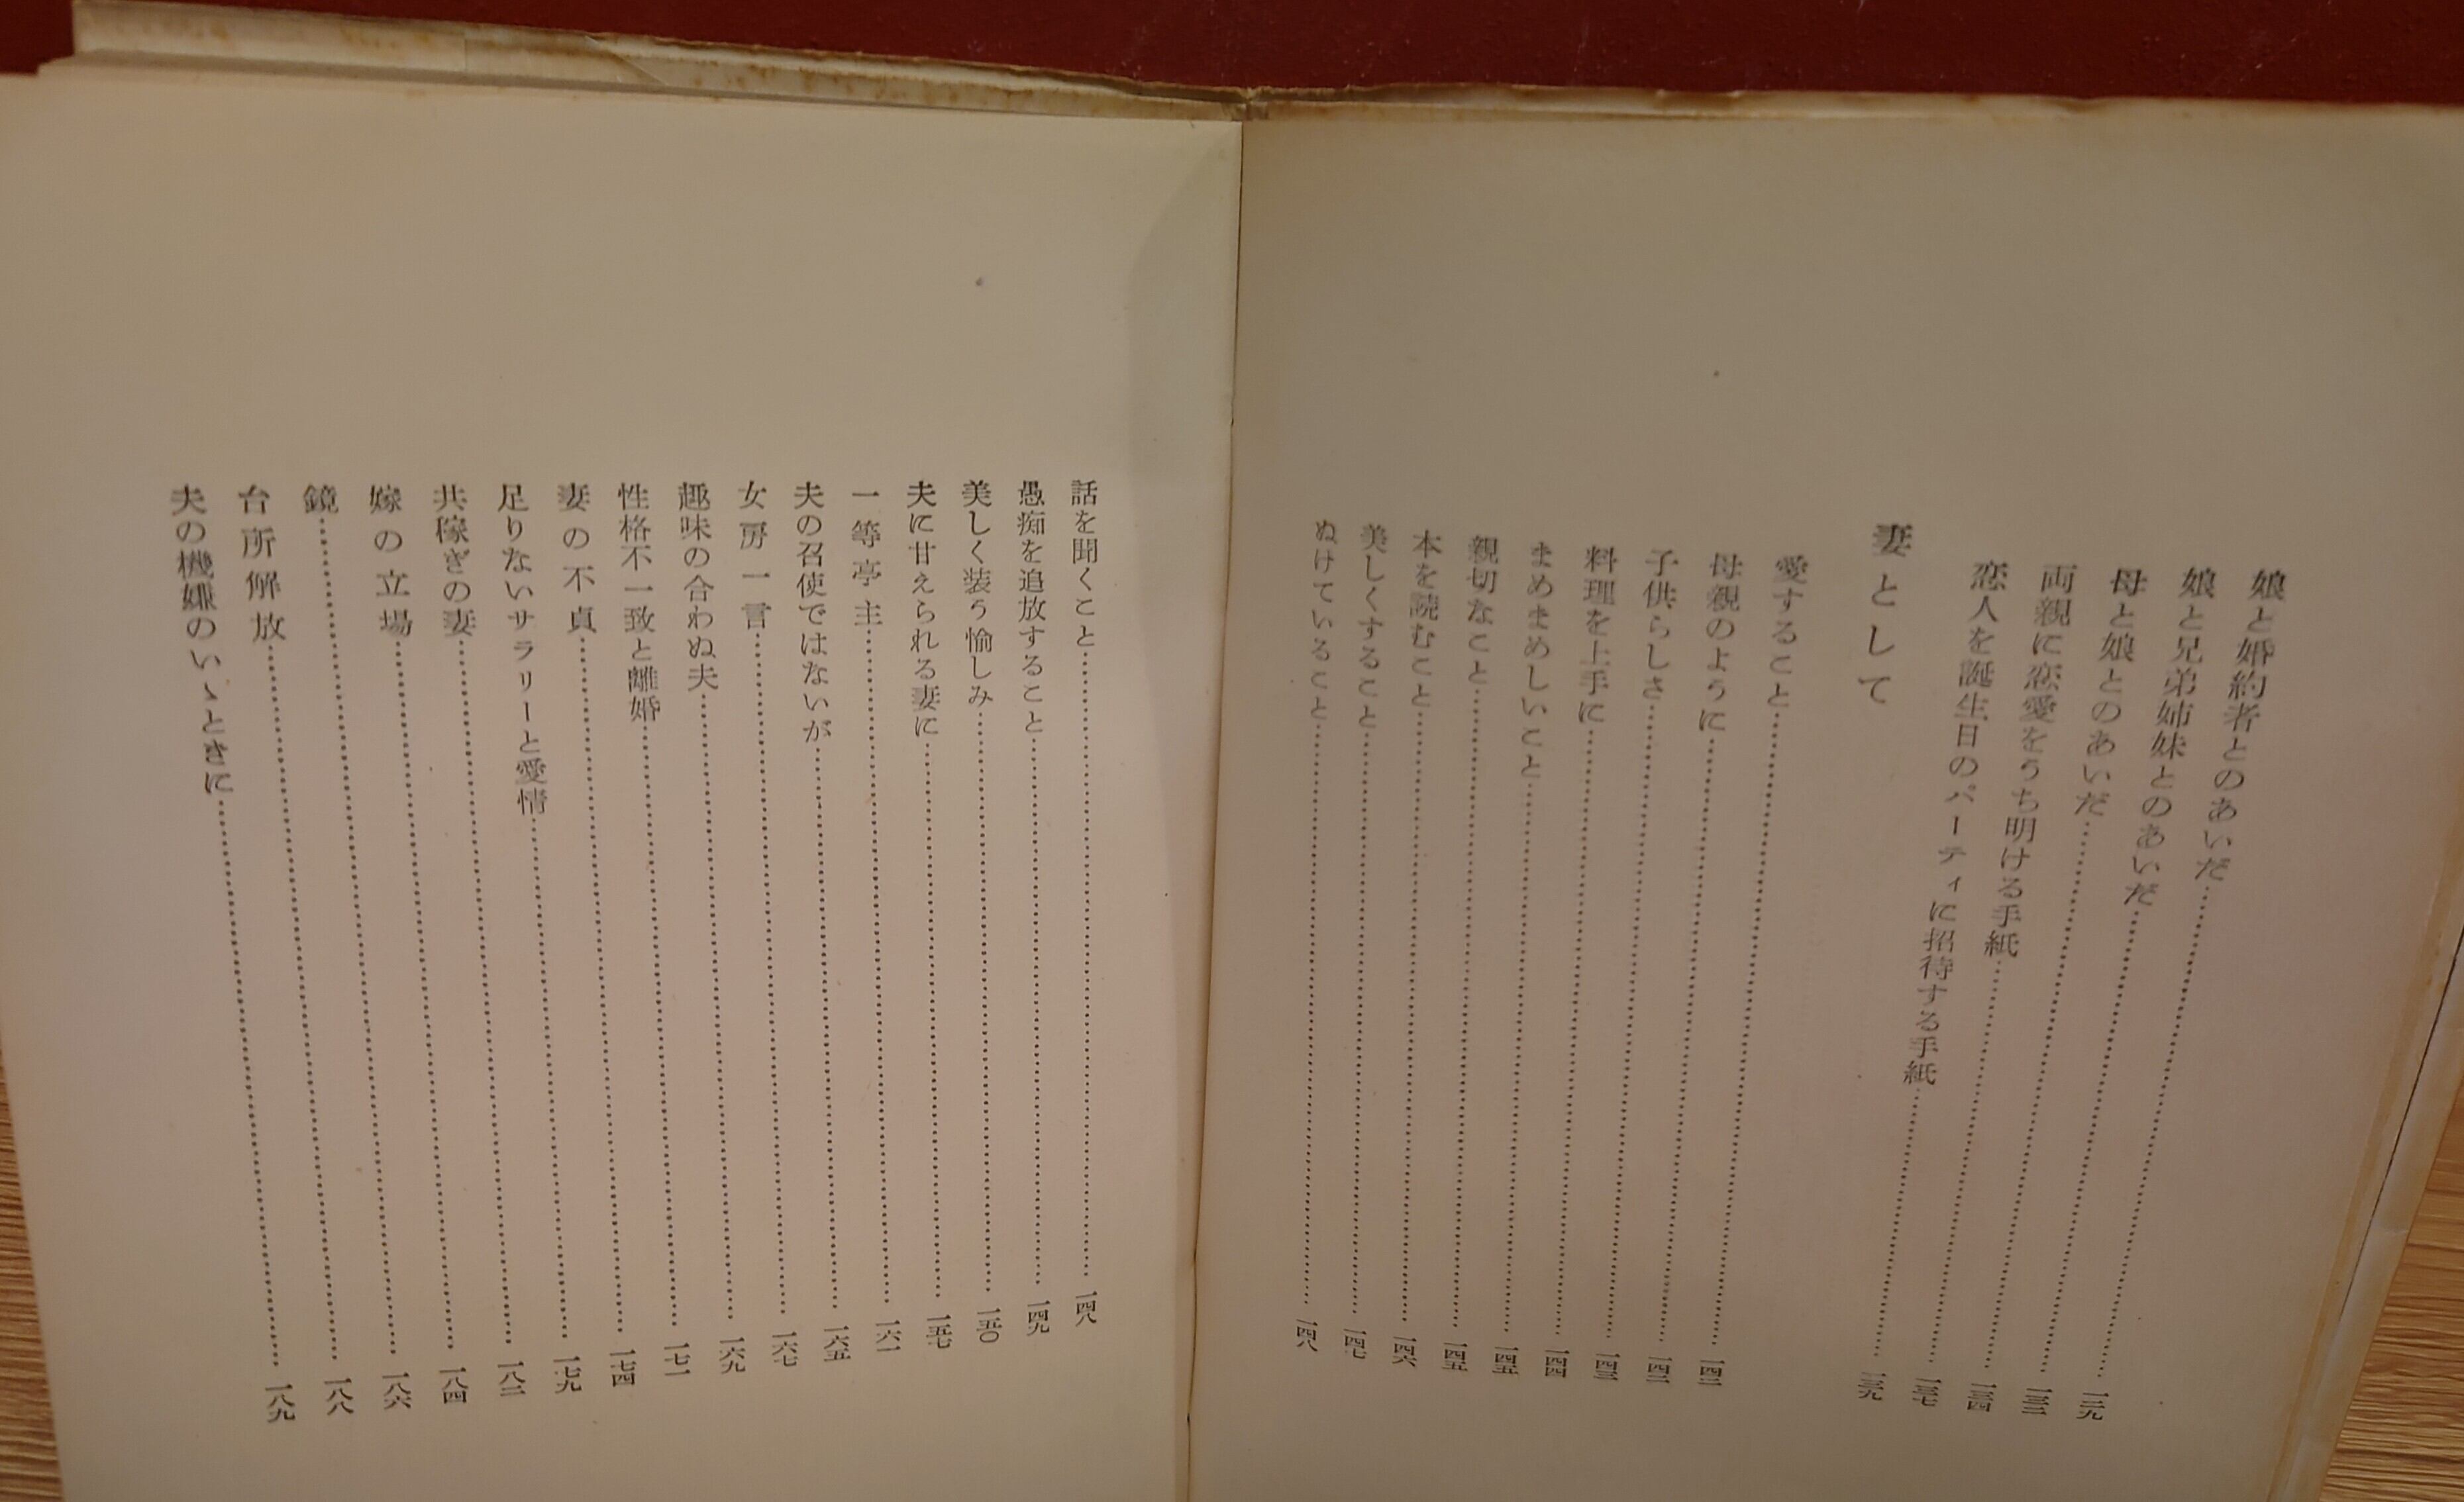 娘と婚約者とのあいだ……一二九
娘と兄弟姉妹とのあいだ……一三二
母と娘とのあいだ……一三四
両親に恋愛をうち明ける手紙……一三七
恋人を誕生日のパーティに招待する手紙……一三九
妻として
愛すること……一四二
母親のように……一四二
子供らしさ……一四三
料理を上手に……一四四
まめまめしいこと……一四五
親切なこと……一四五
本を読むこと……一四六
美しくすること……一四七
ぬけていること……一四八
話を聞くこと……一四八
愚痴を追放すること……一四九
美しく装う愉しみ……一五〇
夫に甘えられる妻に……一五七
一等亭主……一六一
夫の召使ではないが……一六五
女房一言……一六七
趣味の合わぬ夫……一六九
性格不一致と離婚……一七一
妻の不貞……一七四
足りないサラリーと愛情……一七九
共稼ぎの妻……一八二
嫁の立場……一八四
鏡……一八六
台所解放……一八八
夫の機嫌のいゝときに……一八九